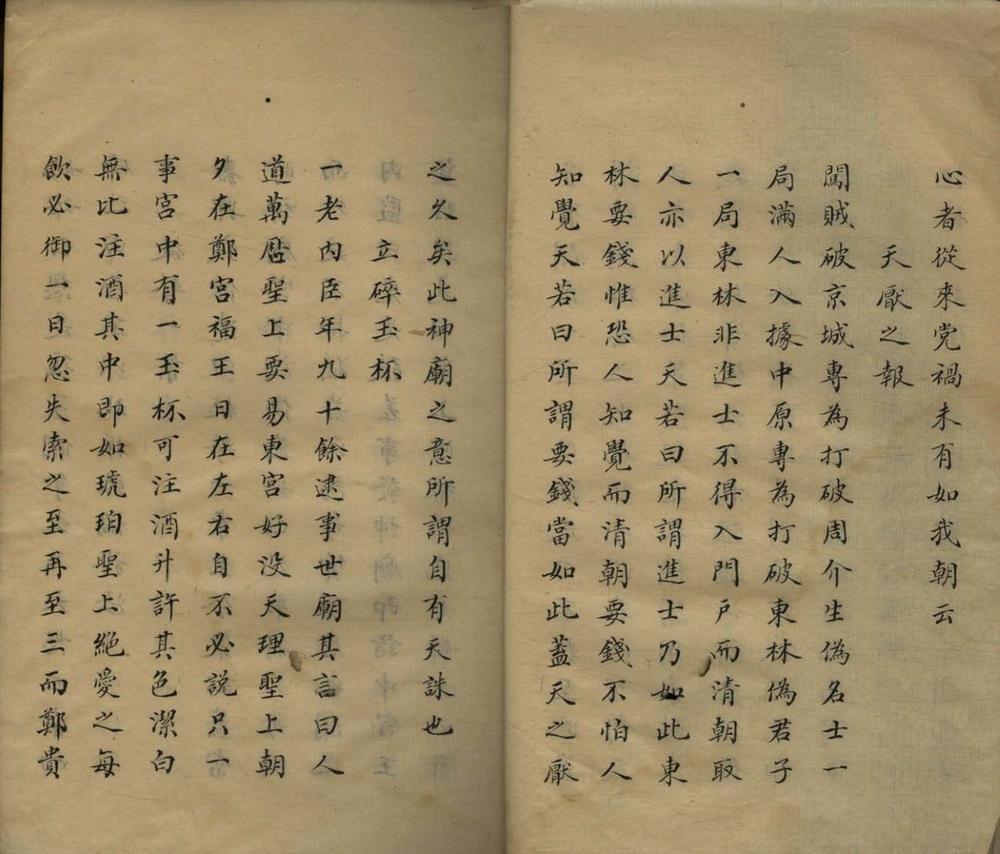 心者從來党禍未有如我朝云
天厭之報
闖賊破京城專為打破周介生偽名士一
局滿人入據中原專為打破東林偽君子
一局東林非進士不得入門戶而清朝取
人亦以進士天若曰所謂進士乃如此東
林要錢惟恐人知覺而清朝要錢不怕人
知覺天若曰所謂要錢當如此蓋天之厭
之久矣此神廟之意所謂自有天誅也
立碎玉杯
一老內臣年九十餘逮事世廟其言曰人
道萬曆聖上要易東宮好没天理聖上朝
夕在鄭宮福王日在左右自不必説只一
事宮中有一玉杯可注酒升許其色潔白
無比注酒其中即如琥珀聖上絕愛之每
飲必御一日忽失索之至再至三而鄭貴